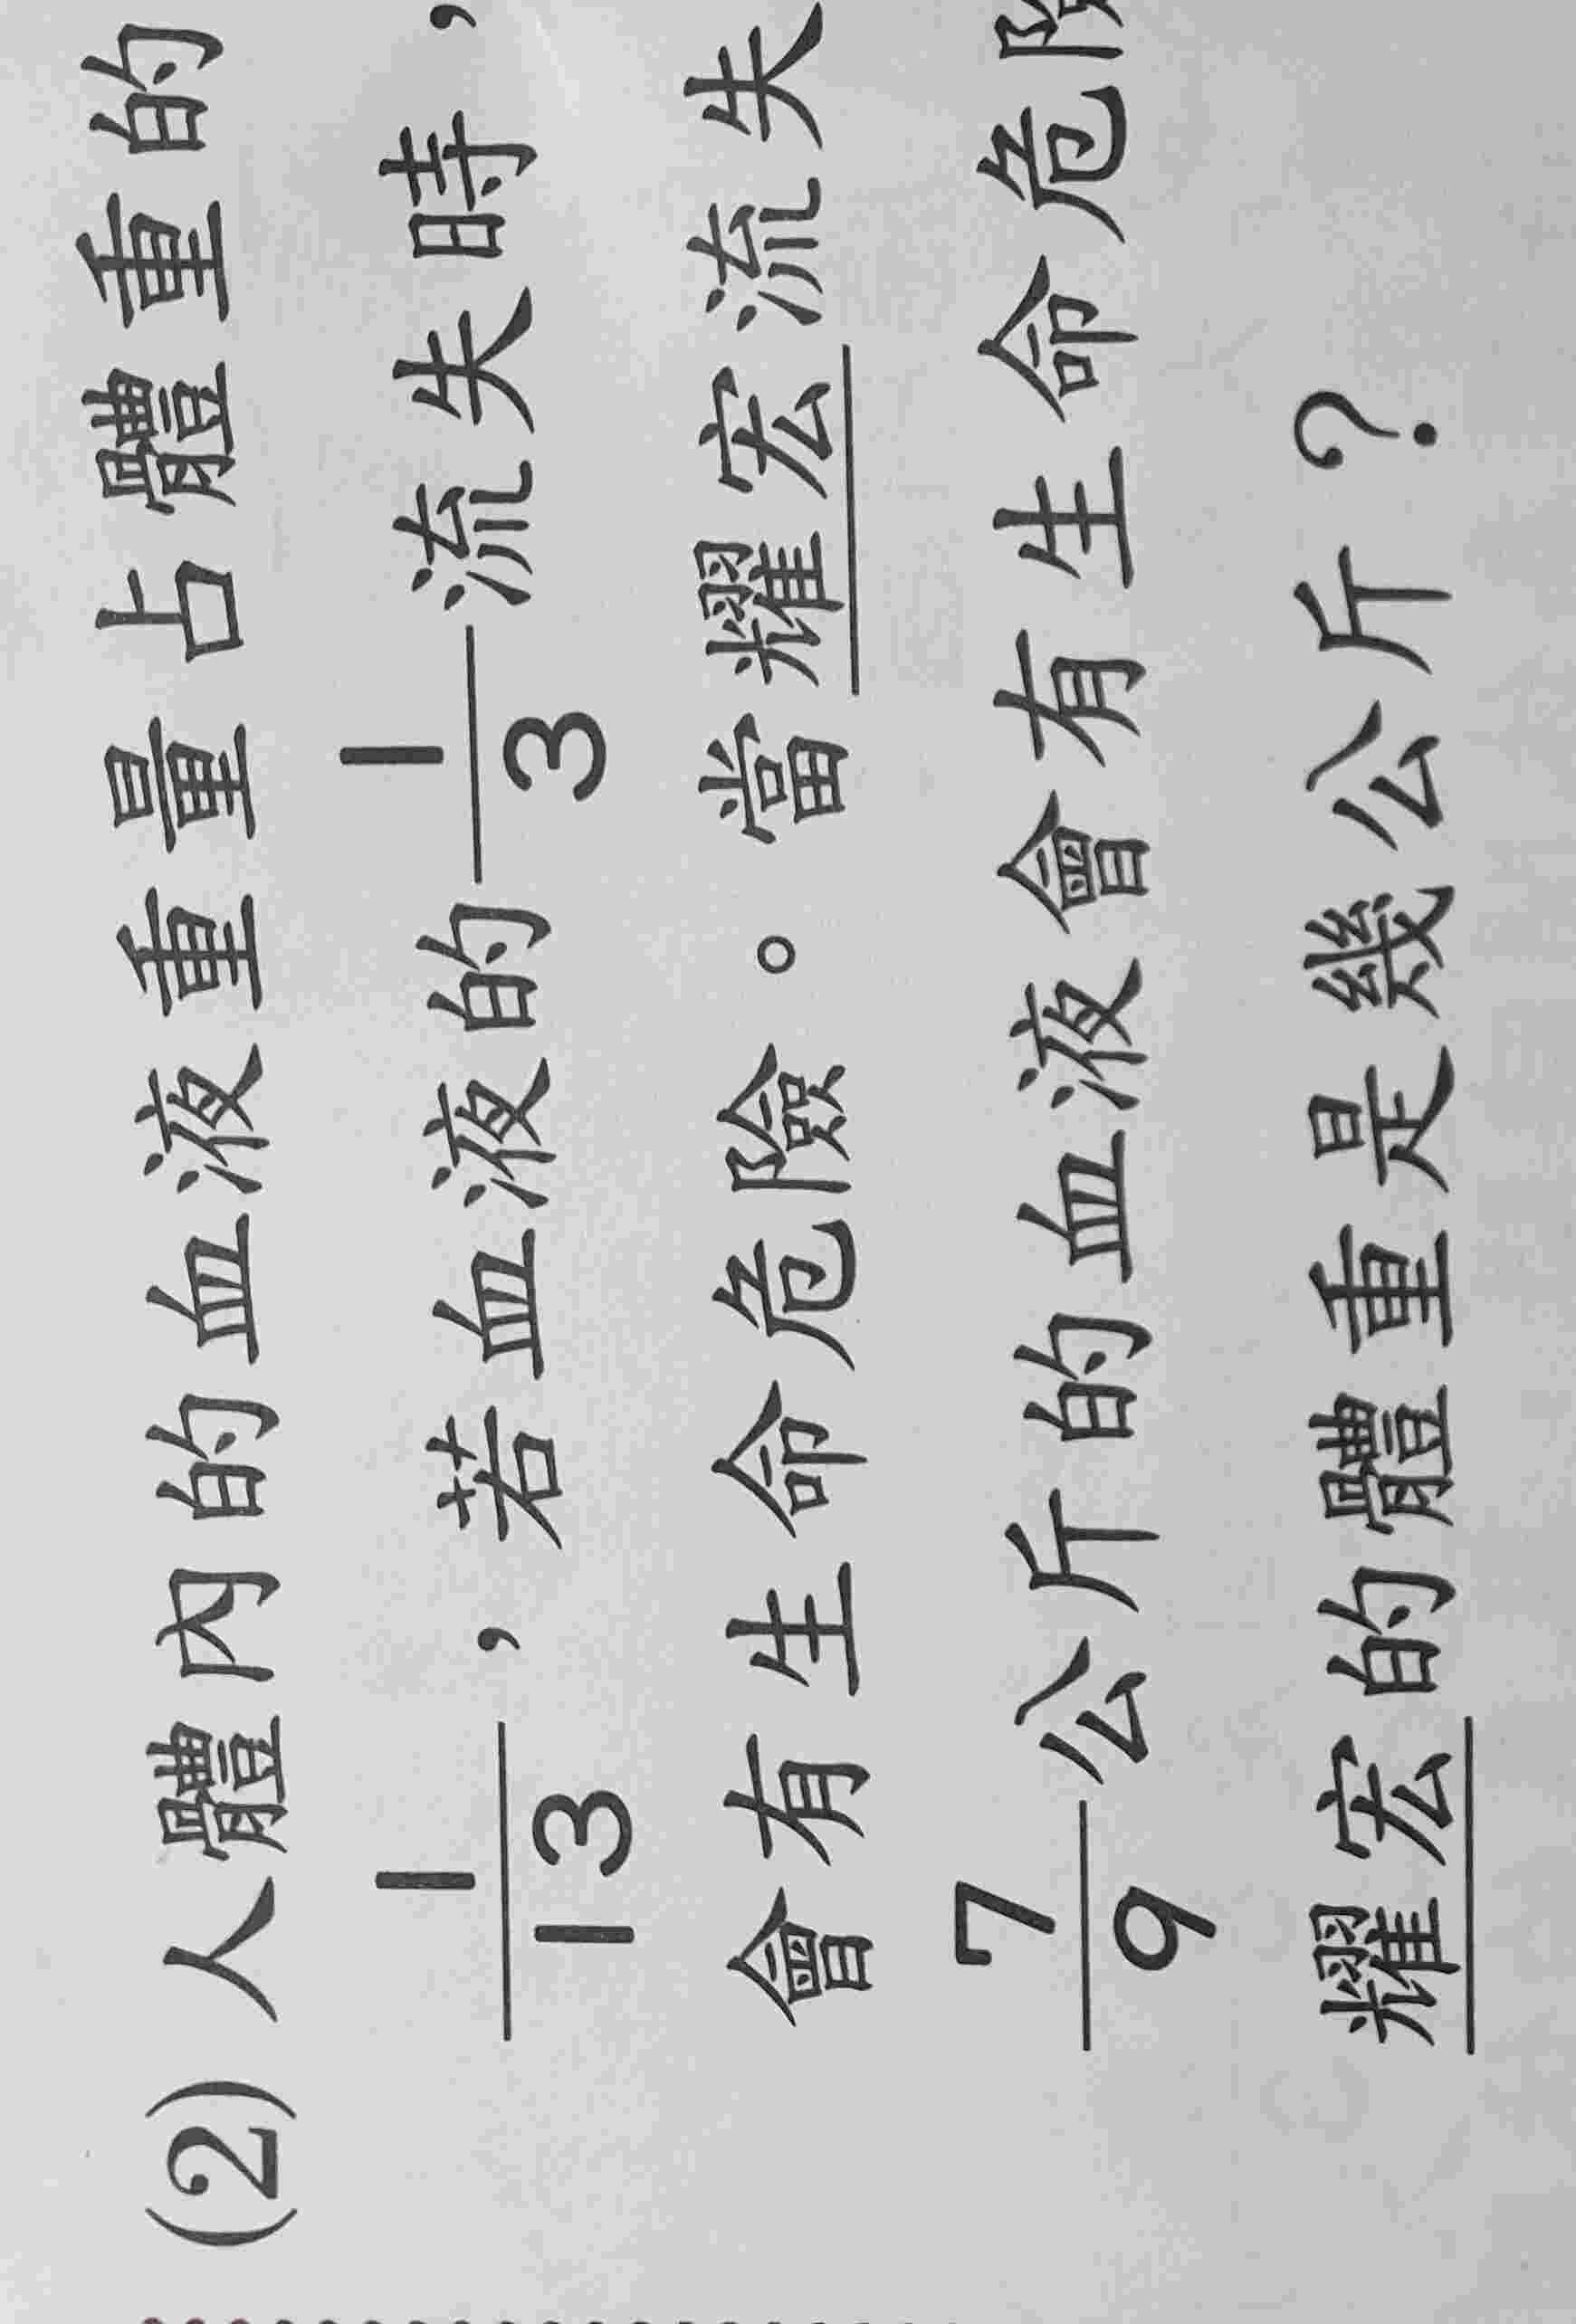 (2) 人體內的血液重量占體重的
1/13,若血液的1/3流失時,
會有生命危險。當耀宏流失
7/9公斤的血液會有生命危險
耀宏的體重是幾公斤?